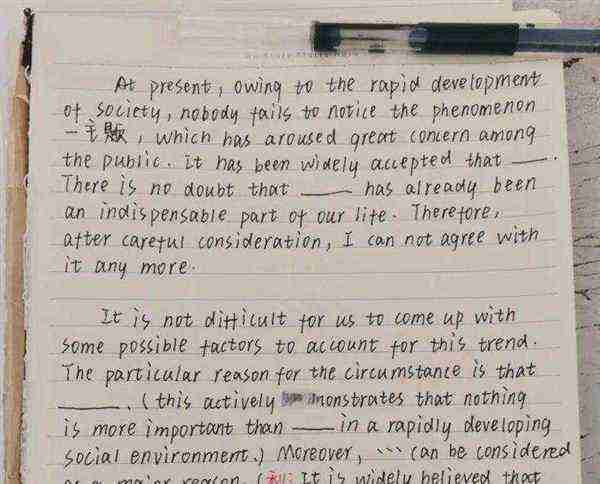 At present, owing to the rapid development
of society, nobody fails to notice the phenomenon
一主题, which has aroused great concern among
the public. It has been widely accepted that ____.
There is no doubt that ____ has already been
an indispensable part of our life. Therefore,
after careful consideration, I can not agree with
it any more.
It is not difficult for us to come up with
some possible factors to account for this trend.
The particular reason for the circumstance is that
____. (this actively monstrates that nothing
is more important than ____ in a rapidly developing
social environment.) Moreover, ... can be considered
as a major reason. (It is widely believed that